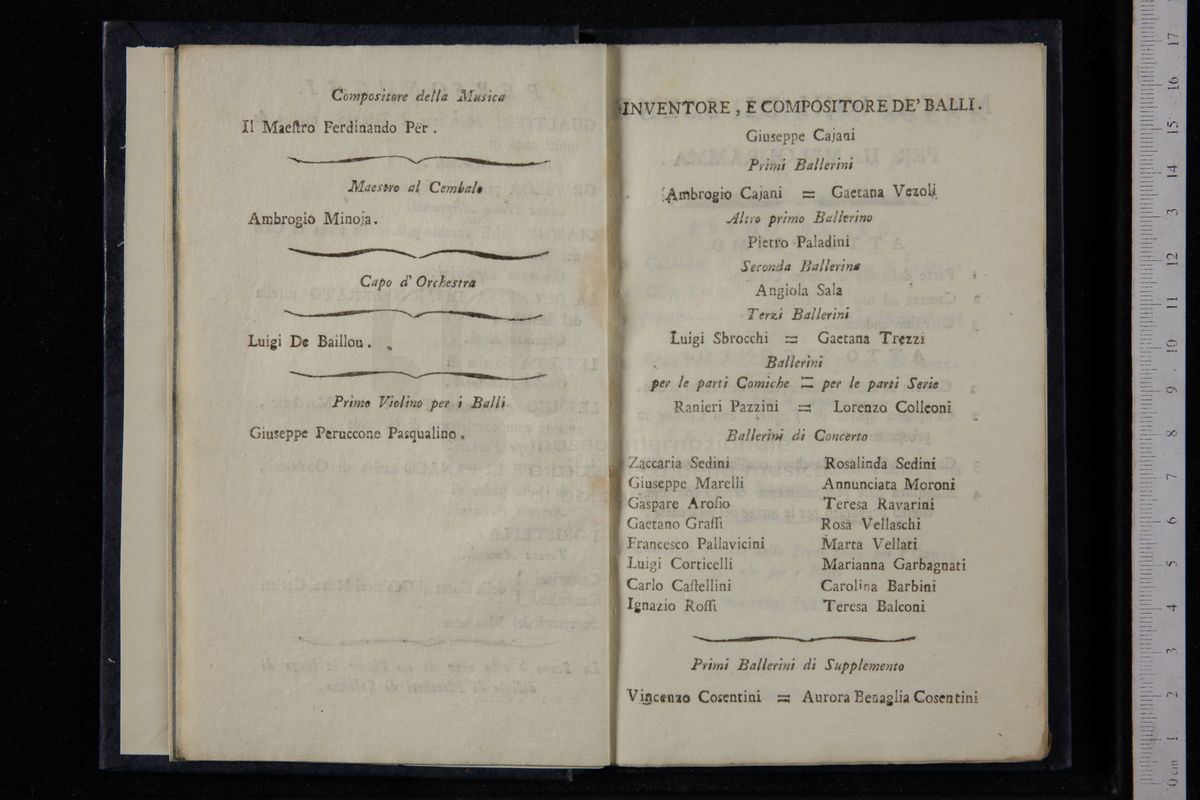 Compositore della Musica
Il Maeſtro Ferdinando Per .
Maestro al Cembalo
Ambrogio Minoja .
Capo d' Orchestra
Luigi De Baillou .
Primo Violino per i Balli
Giuseppe Peruccone Pasqualino .
INVENTORE , E COMPOSITORE DE' BALLI .
Giuseppe Cajani
Primi Ballerini
Ambrogio Cajani = Gaetana Vezoli
Altro primo Ballerino
Pietro Paladini
Seconda Ballerina
Angiola Sala
Terzi Ballerini
Luigi Sbrocchi = Gaetana Trezzi
Ballerini
per le parti Comiche = per le parti Serie
Ranieri Pazzini = Lorenzo Colleoni
Ballerini di Concerto
Zaccaria Sedini Rosalinda Sedini
Giuseppe Marelli Annunciata Moroni
Gaspare Aroſio Teresa Ravarini
Gaetano Graſſi Rosa Vellaschi
Francesco Pallavicini Marta Vellati
Luigi Corticelli Marianna Garbagnati
Carlo Caſtellini Carolina Barbini
Ignazio Roſſi Teresa Balconi
Primi Ballerini di Supplemento
Vincenzo Cosentini = Aurora Benaglia Cosentini
museo internazionale
0 cm 1 2 3 4 5 6 7 8 9 10 11 12 13 14 15 16 17